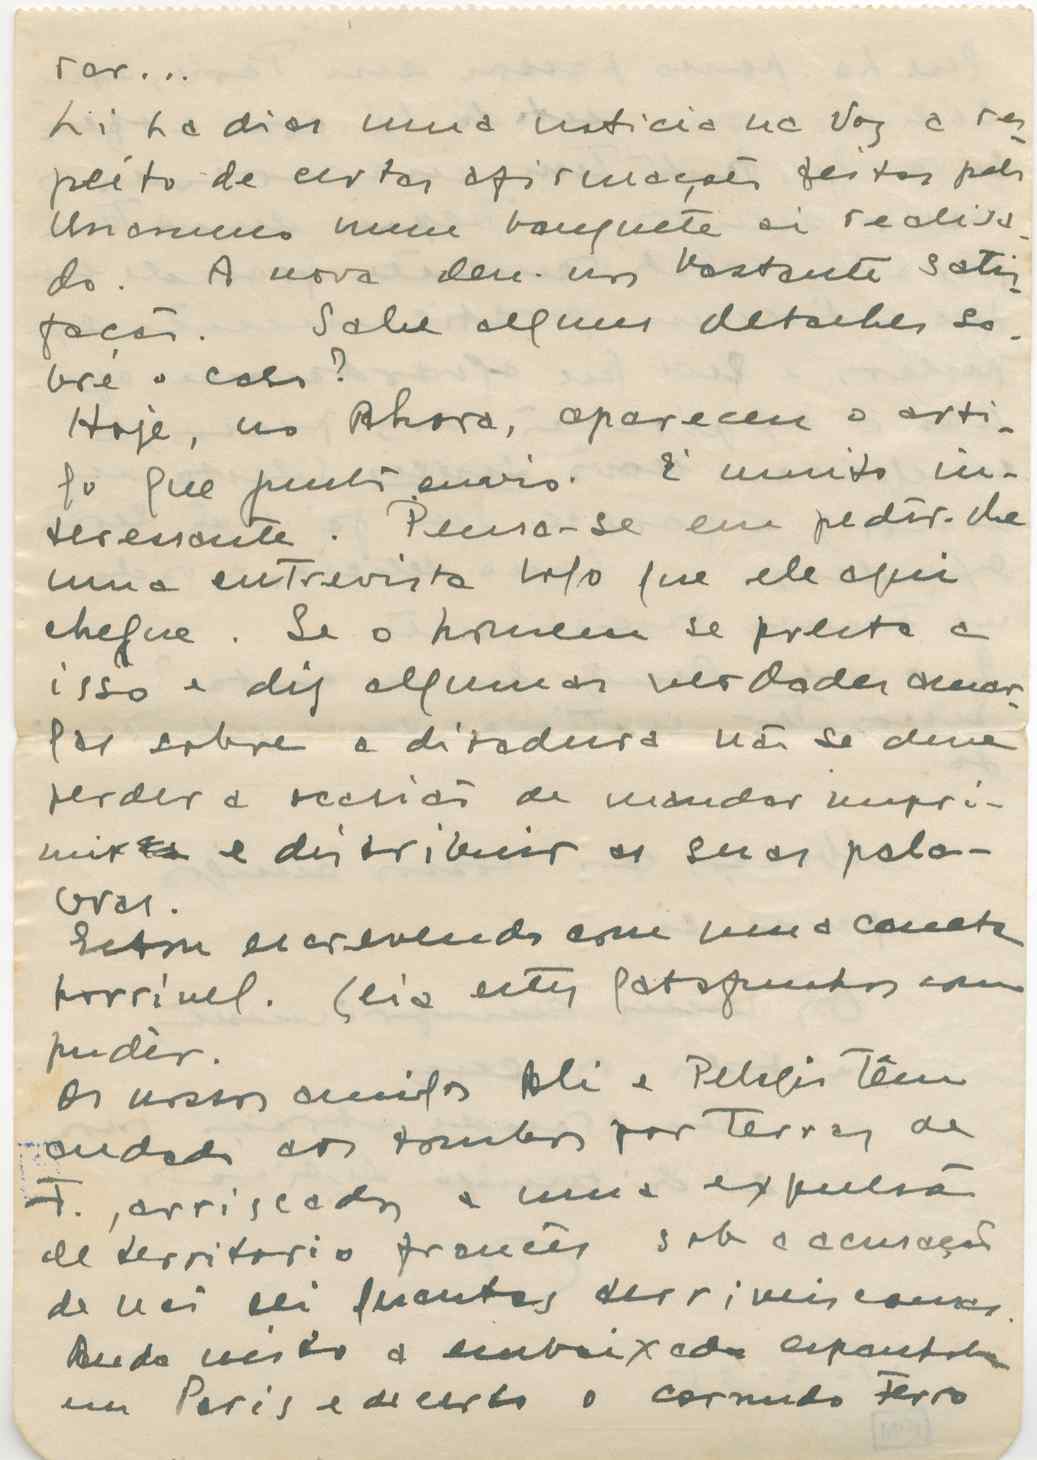 rar...
Li ha dias uma noticia na Voz a res-
peito de certas afirmações feitas pelo
Unamuno num banquete ai realisa-
do. A nova deu-nos bastante satis-
fação. Sabe alguns detalhes so-
bre o caso?
Hoje, no Ahora, apareceu o arti-
go que junto envio. É muito in-
teressante. Pensa-se em pedir-lhe
uma entrevista logo que ele aqui
chegue. Se o homem se presta a
isso e diz algumas verdades amar-
gas sobre a ditadura não se deve
perder a ocasião de mandar impri-
mir e distribuir as suas pala-
vras.
Estou escrevendo com uma caneta
horrivel. Leia estes gatafunhos como
pudér.
Os nossos amigos Ali e Pelagio têm
andado aos tombos por terras de
F., arriscados a uma expulsão
de territorio francês sob a acusação
de não sei quantas terriveis cousas.
Anda nisto a embaixada espanhola
em Paris e decerto o cornudo Ferro